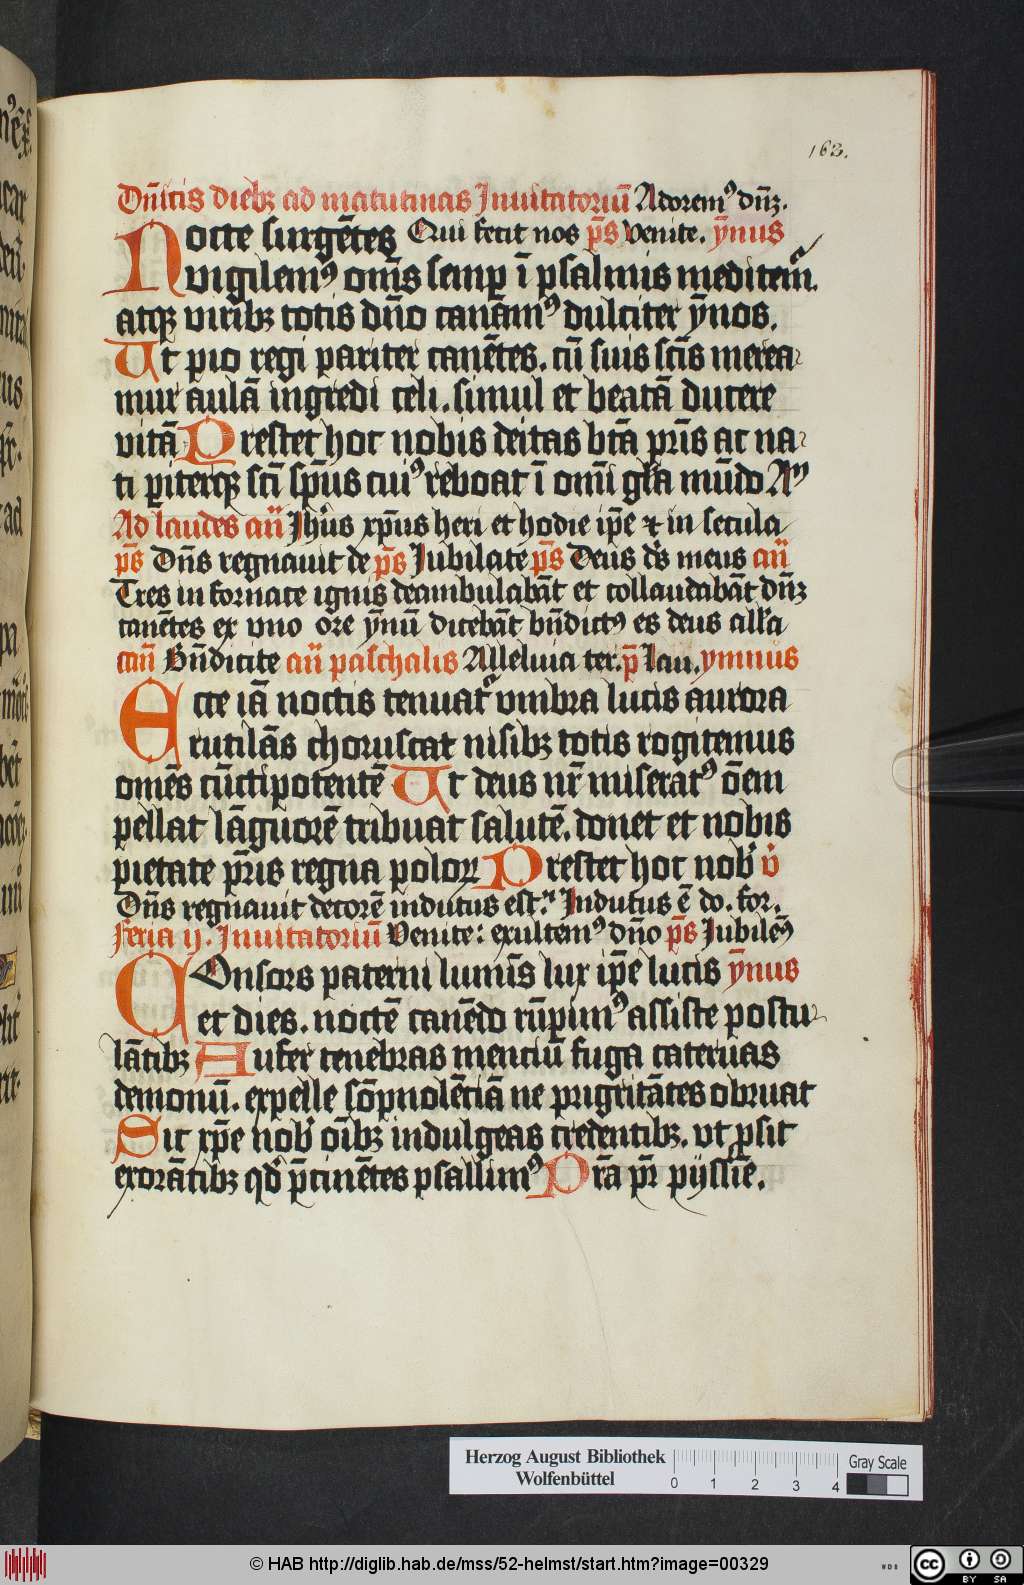 163.
Dn̄icis dieb; ad matutinas Inuitatoriū Adorem᾽ dn̄z.
Nocte surgētes Qui fecit nos ps̄ venite. ȳnus
vigilem᾽ om̄s semp ī psalmis meditem̄.
atq; virib; totis dn̄o canam᾽ dulciter ȳnos.
Ut pio regi pariter canētes. cū suis sc̄is merea-
mur aulā ingredi celi. simul et beatā ducere
vitā Prestet hoc nobis deitas bt̄a pr̄is ac na-
ti pariterq; sc̄i sp̄us cui᾽ reboat ī om̄i gl̄a mūdo Am̄
Ad laudes an̄ Ihūs xp̄us heri et hodie ip̄e ⁊ in secula
ps̄ Dn̄s regnauit de ps̄ Iubilate ps̄ Deus ds̄ meus an̄
Tres in fornace ignis deambulabāt et collaudabāt dn̄z
canētes ex vno ore ȳnū dicebāt bn̄dict᾽ es deus all̄a
can̄ Bn̄dicite an̄ paschalis Alleluia ter. p̄ Lau. ymnus
Ecce iā noctis tenuat᾽ vmbra lucis aurora
rutilās choruscat nisib; totis rogitemus
omēs cūctipotentē Ut deus nr̄ miserat᾽ ōem
pellat lāguorē tribuat salutē. donet et nobis
pietate pr̄is regna poloꝝ Prestet hoc nob᾽ v̄
Dn̄s regnauit decorē indutus est. ℞ Indutus ē do. for.
Feria ij. Inuitatoriū Venite: exultem᾽ dn̄o ps̄ Iubilem᾽
Consors paterni lumīs lux ip̄e lucis ȳnus
et dies. noctē canēdo rūpim᾽ assiste postu-
lātib; Aufer tenebras mentiū fuga cateruas
demonū. expelle sōpnolētiā ne pigritātes obruat
Sic xp̄e nob᾽ oīb; indulgeas credentib;. vt ꝓsit
exorātib; qd̄ p̄cinētes psallim᾽ Pr̄a pr̄ pijssīe.
Herzog August Bibliothek
Wolfenbüttel
0 1 2 3 4
Gray Scale
© HAB http://diglib.hab.de/mss/52-helmst/start.htm?image=00329
WDB
CC BY SA